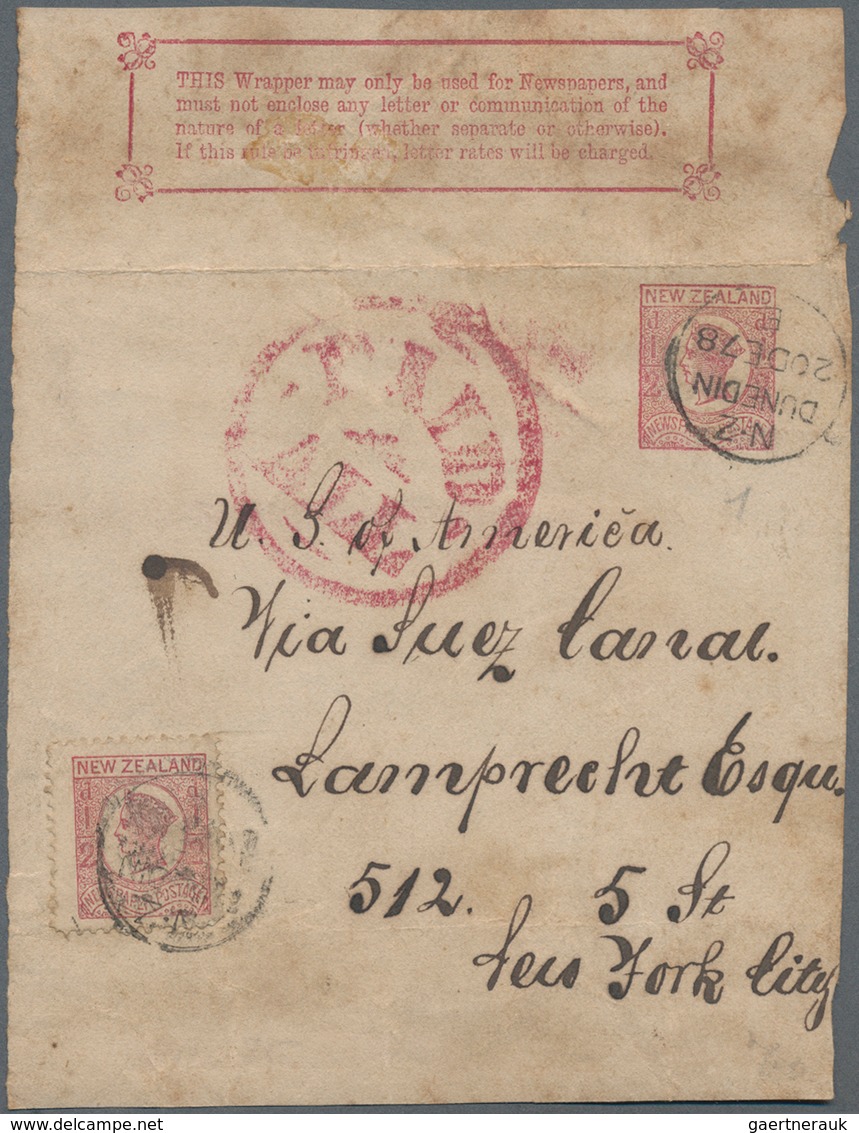 THIS Wrapper may only be used for Newspapers, and
must not enclose any letter or communication of the
nature of a letter (whether separate or otherwise).
If this rule be infringed, letter rates will be charged.
NEW ZEALAND
d
1
2
NEWSP
EP
20 DE 78
DUNEDIN
N.Z
PAID
ALL
1
U. S. of America.
Via Suez Canal.
Lamprecht Esqu.
512. 5 St
New York City
NEW ZEALAND
d d
1 1
2
NEWSPAPER POSTAGE
delcampe.net
gaertnerauk